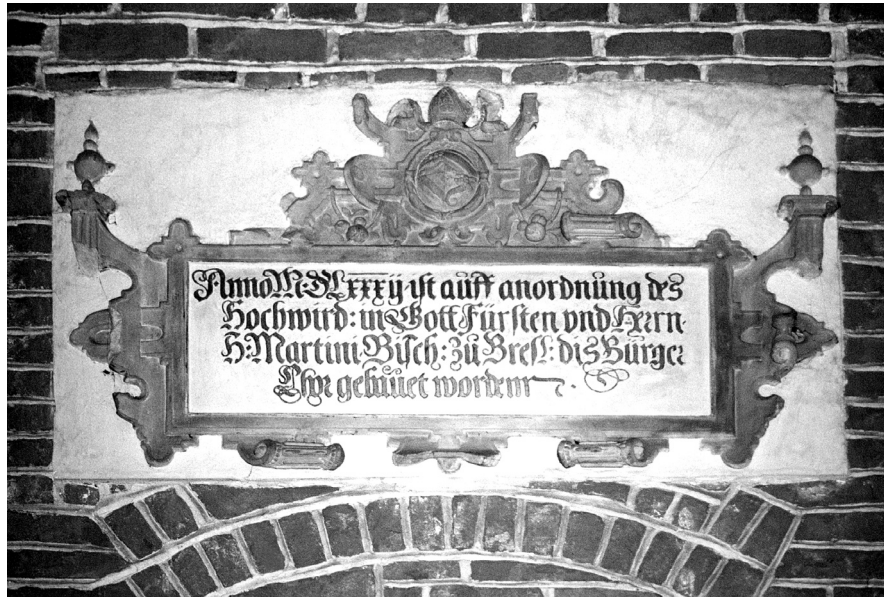 Anno M·DLxxxij ist auff anordnung des
Hochwird: in Gott Fürsten vnd Herrn·
H: Martini Bisch: zu Bresl: dis Bürger
Thor gebauet worden